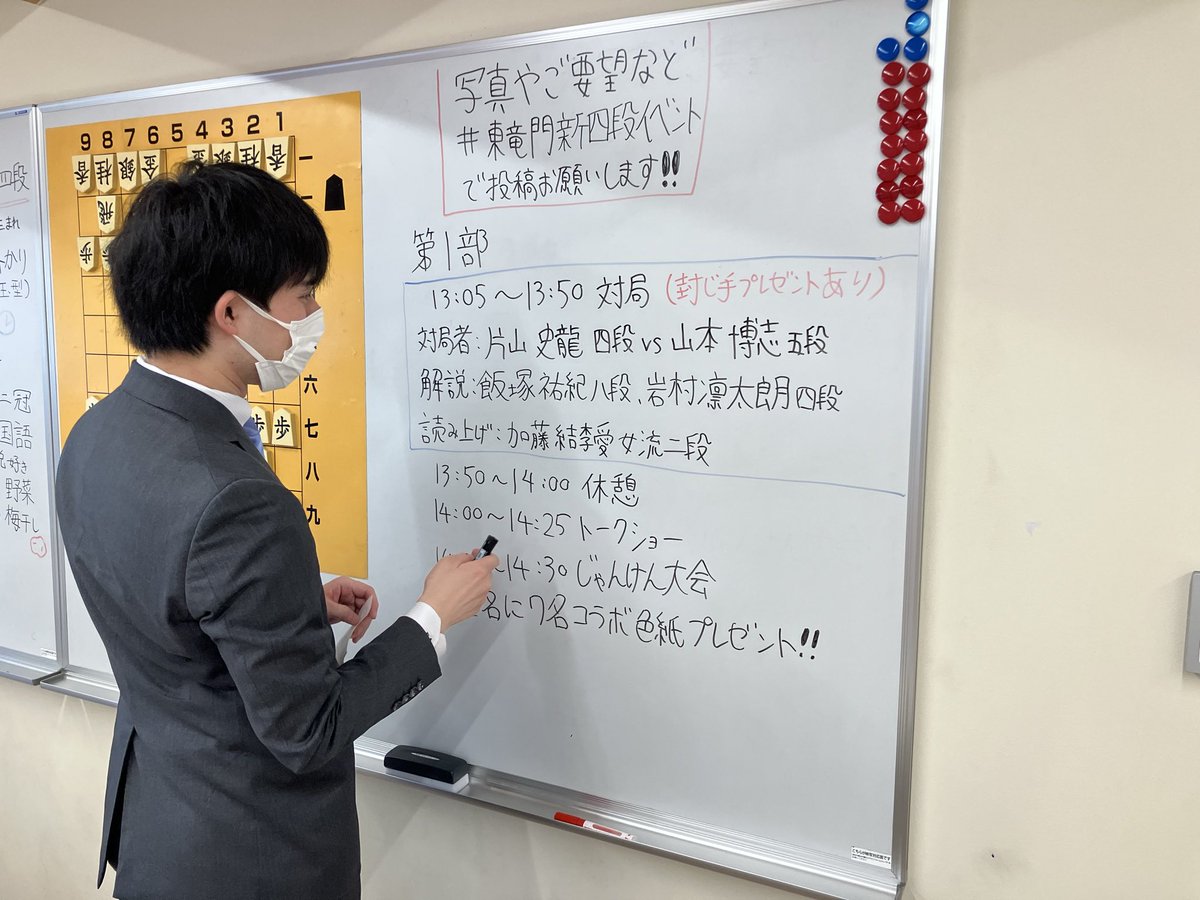 四段
まれ
かり
玉型)
二冠
国語
好き
野菜
梅干し
9 8 7 6 5 4 3 2 1
香 桂 銀 金 金 銀 桂 香
一
飛
歩
六
歩 歩 七
八
九
写真やご要望など
#東竜門新四段イベント
で投稿お願いします!!
第1部
13:05～13:50 対局 (封じ手プレゼントあり)
対局者:片山 史龍 四段 vs 山本 博志 五段
解説:飯塚 祐紀 八段、岩村凛太朗 四段
読み上げ:加藤 結李愛 女流二段
13:50～14:00 休憩
14:00～14:25 トークショー
～14:30 じゃんけん大会
名に7名コラボ色紙プレゼント!!